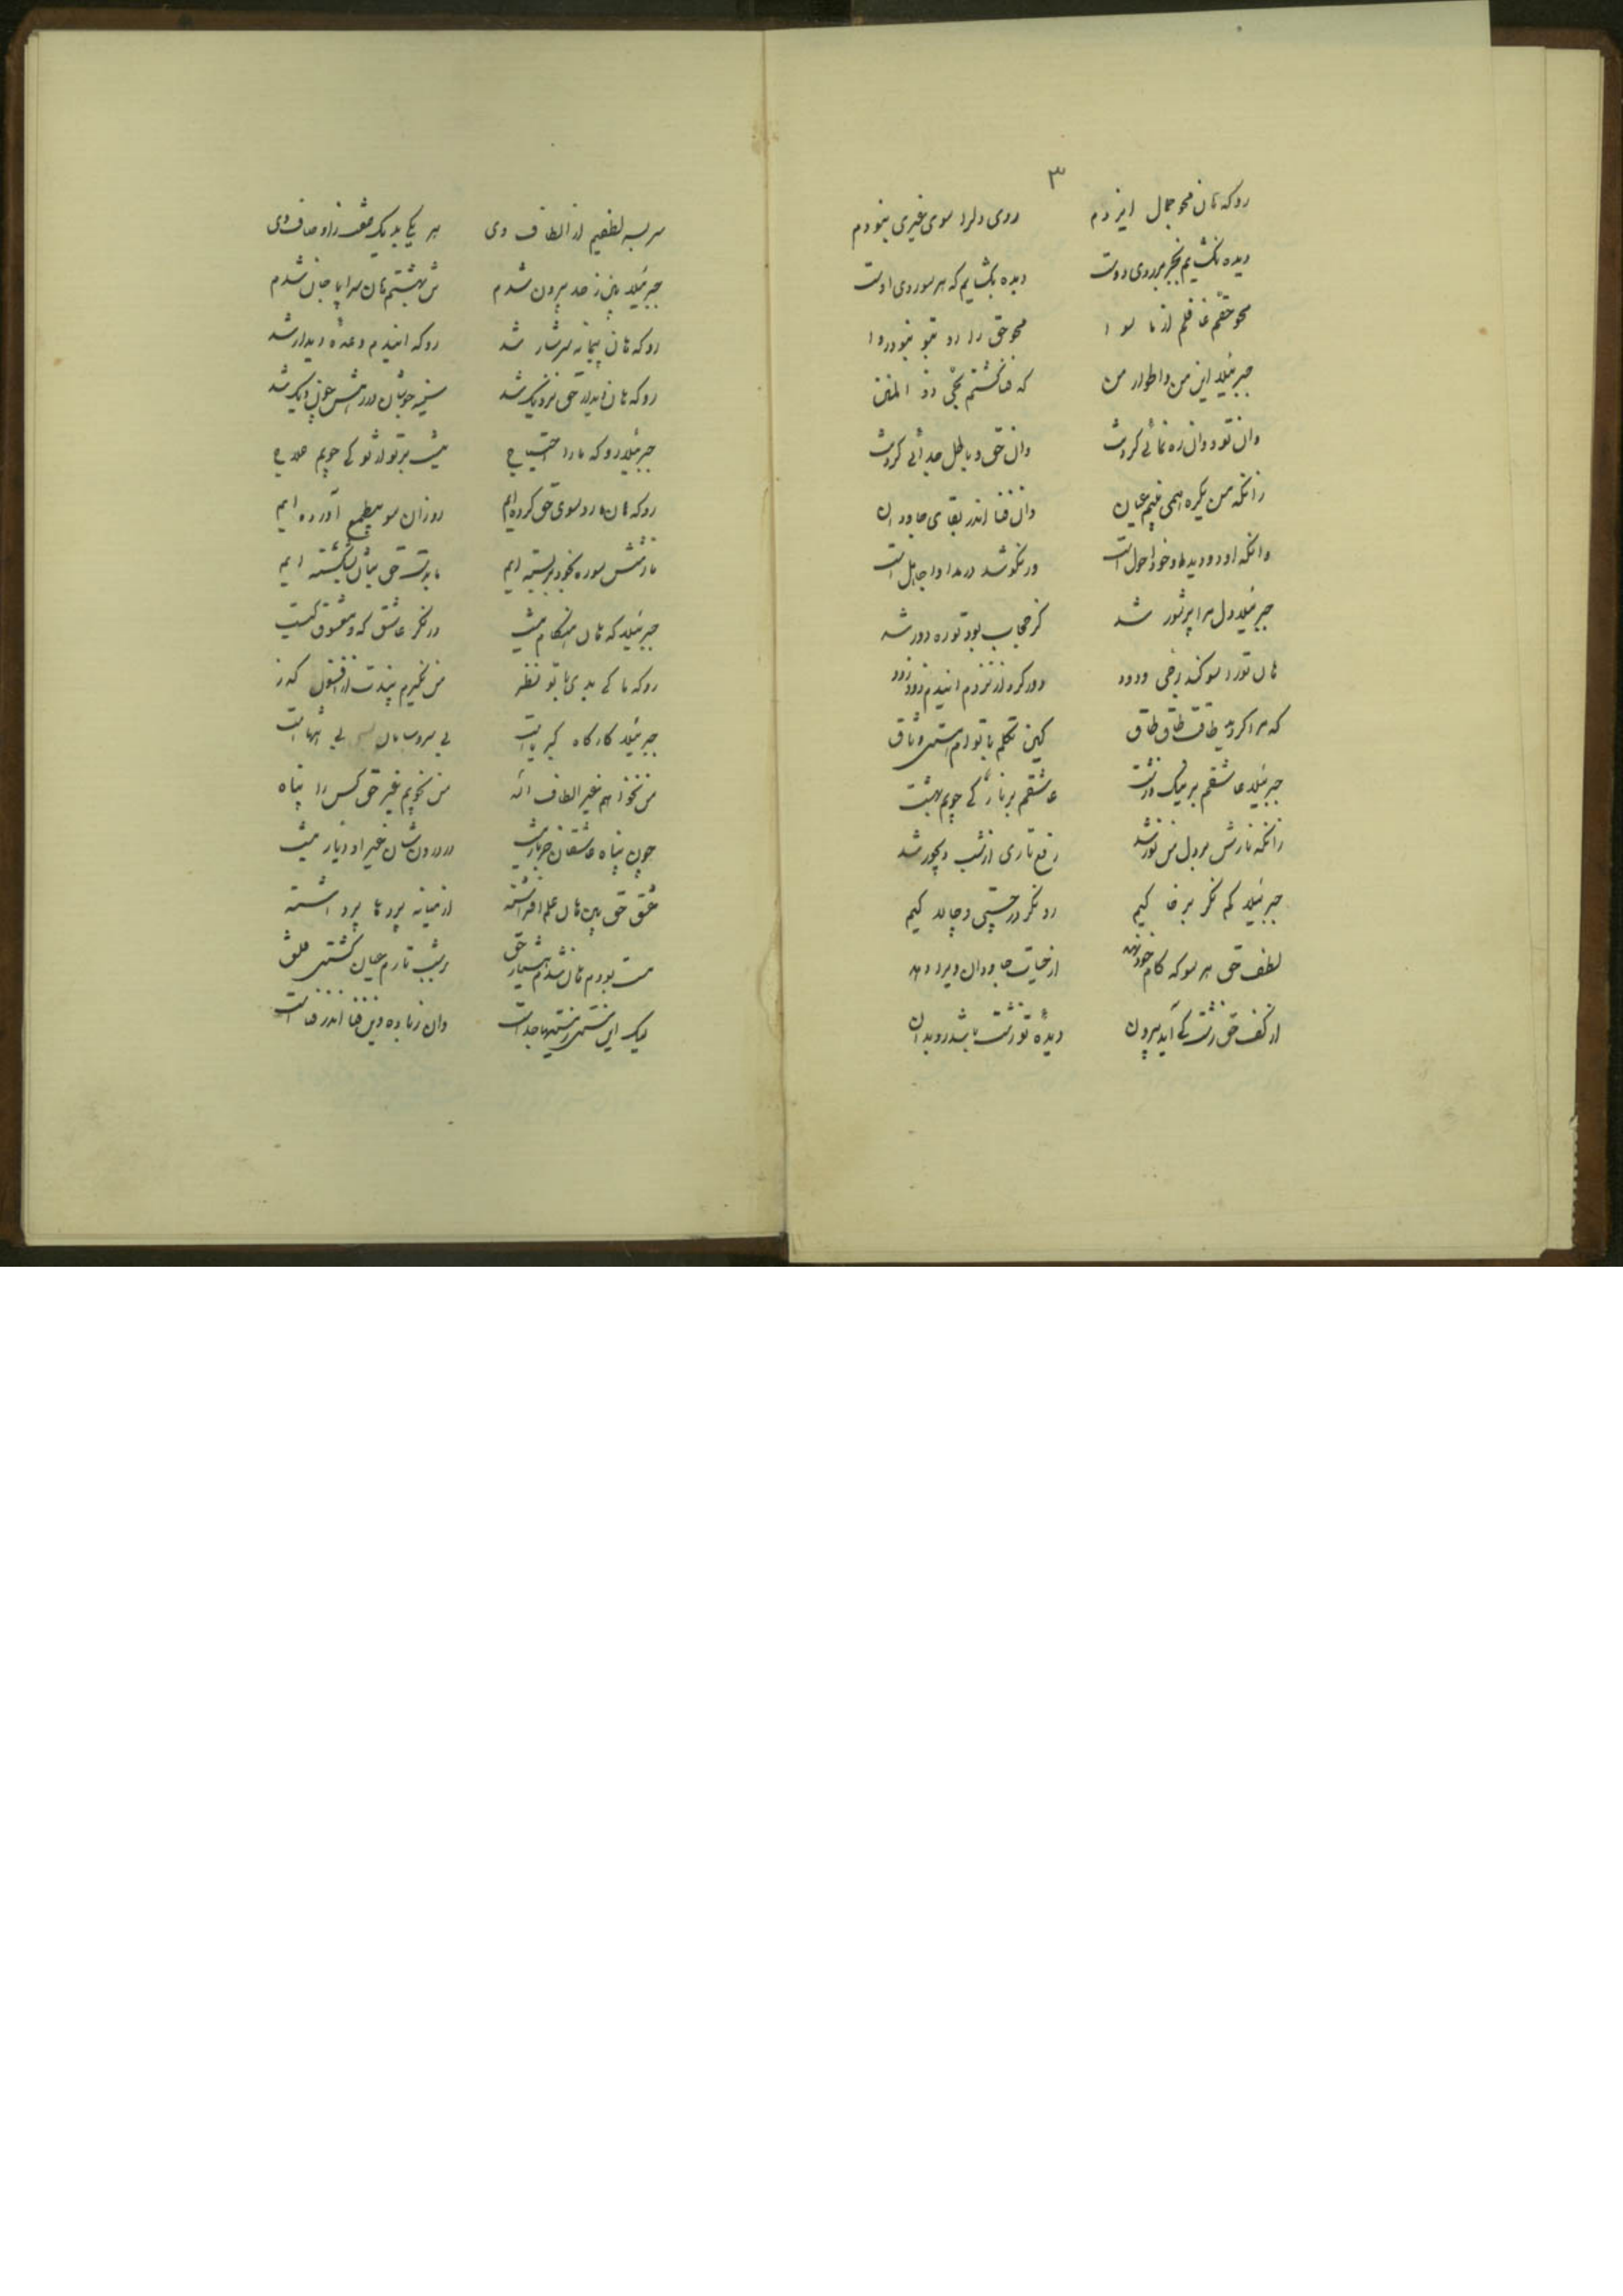 ۳
روکه هان محو جمال ایزدم روی دل را سوی غیری ننمودم
دیده نگشایم بجز بر روی دوست دیده بگشایم که هر سو روی اوست
محو حقم غافلم از ما سوا محو حق را رو بتو نبود روا
جبرئیلا این من و اطوار من که فنا گشتم بحی ذو المنن
وان تو و وان ره نمائی کردنت وان حق و باطل جدائی کردنت
زانکه من یکره همی بینم عیان وان فنا اندر بقای جاودان
وانکه او دو دید او خود احول است ور نکوشد در مداوا جاهل است
جبرئیلا دل مرا پر شور شد کز حجاب بود تو ره دور شد
هان تو را سوگند بر حی ودود دور کرد از نزدم ایندم زود زود
که مرا کردید طاقت طاق طاق کین تکلم با تو ام وثاق
جبرئیلا عاشقم بر نیک و زشت عاشقم بر نار کی جویم بهشت
زانکه نارش بر دل من نور شد رفع تاری از شب دیجور شد
جبرئیلا کم نگر بر خاکیم رو نگر در چستی و چالاکیم
لطف حق هر سو که کام خود نهد از حیات جاودان وی را دهد
از کف حق زشت کی آید برون دیده تو زشت باشد رو بدان
سر بسر لطفیم از الطاف وی هر یکی بدیک صفت ز اوصاف وی
جبرئیلا بین ز حد بیرون شدم من بهشتم هان سراپا جان شدم
روکه هان پیمانه سرشار شد روکه ایندم وعده دیدار شد
روکه هان دیدار حق نزدیک شد سینه جوشان در رهش چون دیک شد
جبرئیلا روکه ما را احتیاج نیست بر تو از تو کی جویم علاج
روکه هان ما رو سوی حق کرده ایم رو زان سو بیطمع آورده ایم
ما ز شش سو ره بخود بر بسته ایم ما بدست حق بتان بشکسته ایم
جبرئیلا که هان هنگام نیست در نگر عاشق که و معشوق کیست
روکه ما کی بدی با تو نظر من نگیرم پندت از افسون گذر
جبرئیلا کارگاه کبریاست بی سر و سامان بسی بی انتهاست
من نخواهم غیر الطاف اله من نجویم غیر حق کس را پناه
چون پناه عاشقان جز یار نیست در درونشان غیر او دیار نیست
عشق حق بین هان علم افراشته از میانه پردها برداشته
مست بودم هان شدم هشیار حق بر شب تارم عیان گشتی فلق
لیک این هستی ز هستیها جداست وان ز باده وین فنا اندر فناست